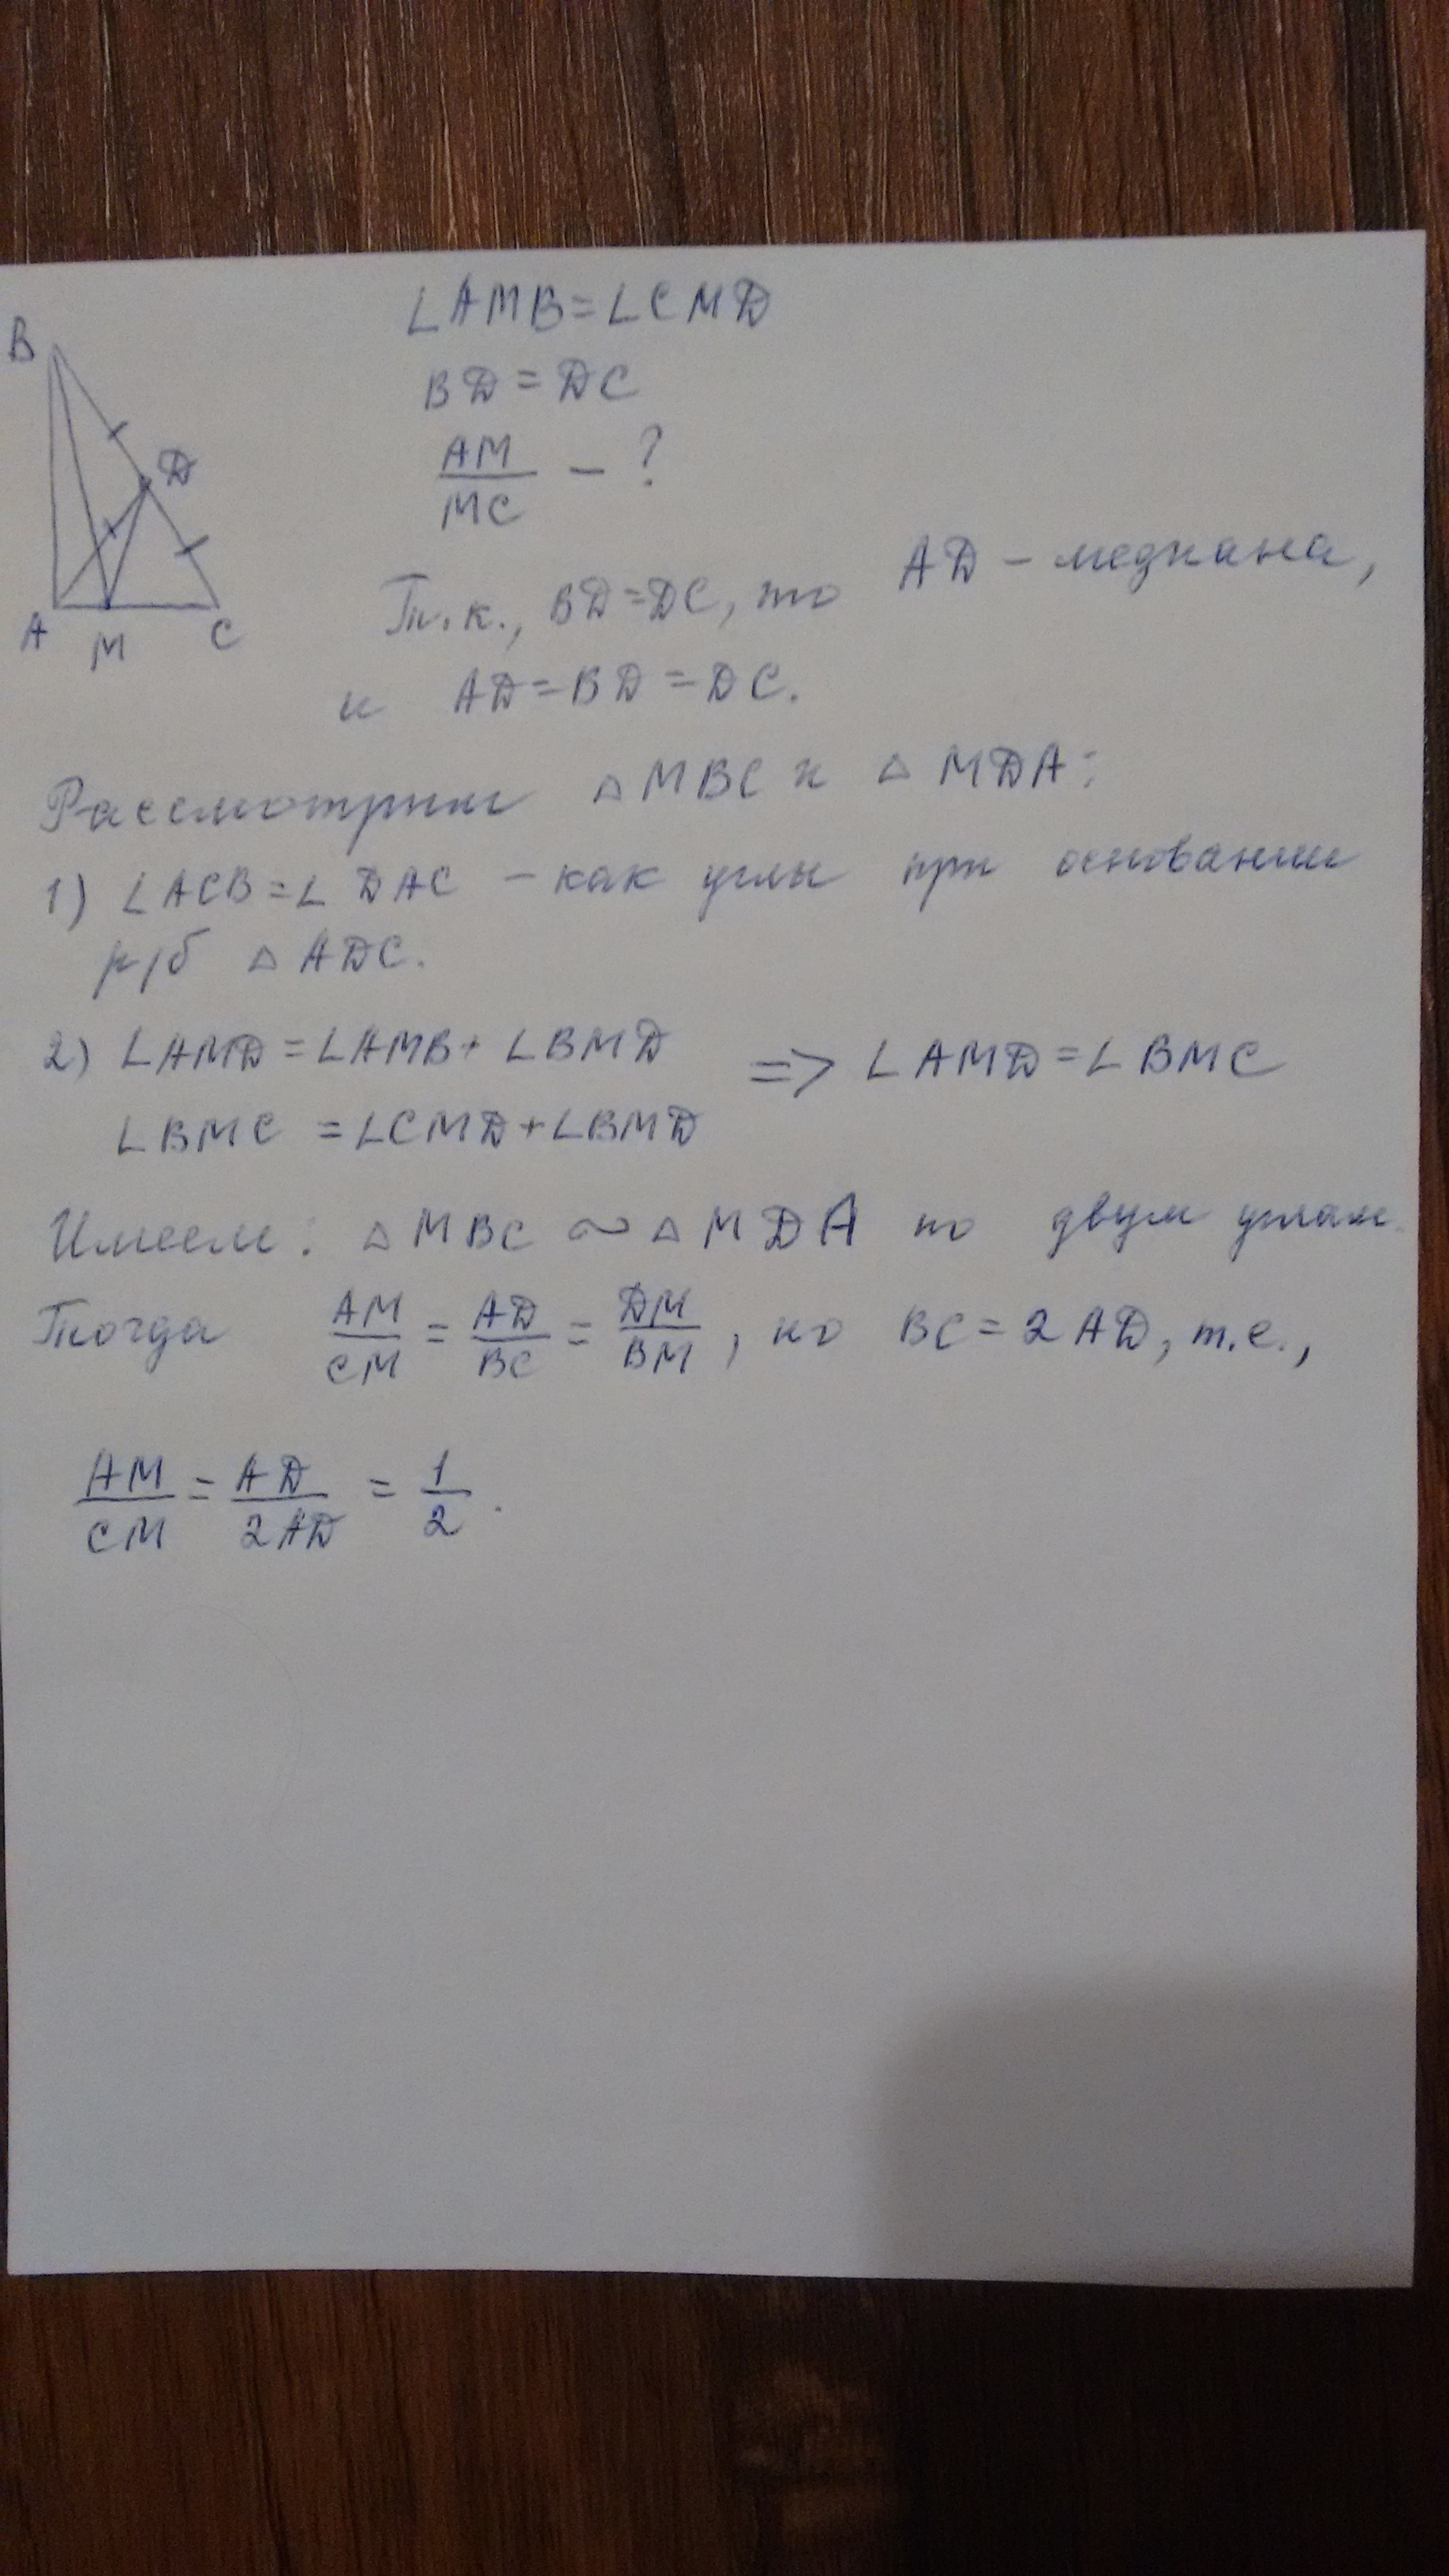 ∠AMB=∠CMD
B
BD=DC
D
AM/MC - ?
A M C
Т.к., BD=DC, то AD - медиана,
и AD=BD=DC.
Рассмотрим △MBC и △MDA:
1) ∠ACB=∠DAC - как углы при основании
р/б △ADC.
2) ∠AMD=∠AMB+∠BMD
=> ∠AMD=∠BMC
∠BMC=∠CMD+∠BMD
Имеем: △MBC ~ △MDA по двум углам.
Тогда AM/CM = AD/BC = DM/BM, но BC=2AD, т.е.,
AM/CM = AD/2AD = 1/2.